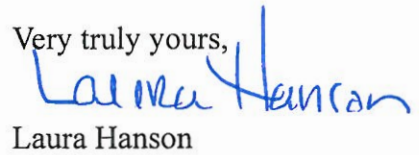 Very truly yours,
Laura Hanson
Laura Hanson